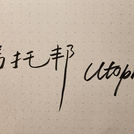 托邦 Utop